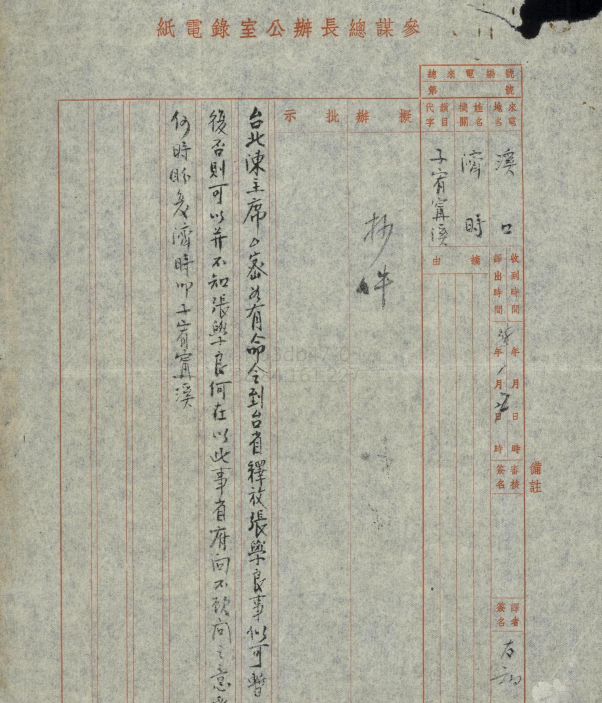 參謀總長辦公室錄電紙
總來電掛號
第 號
來電
地名
姓名
機關
韻目
代字
溪口
濟時
子宥甯溪
擬辦批示
抄件
由機
收到時間
譯出時間
年月日時
年 月 日 時
審核
簽名
譯者
簽名
備註
台北陳主席密如有命令到台省釋放張學良事似可暫
後否則可以并不知張學良何在以此事省府向不預聞之意
何時盼復濟時叩子宥甯溪